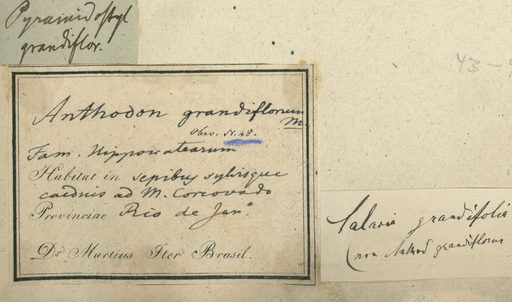 Pyramidostyl
grandiflor.
43-
Anthodon grandiflorum
M.
Obs. 51.48.
Fam. Hippocratearum
Habitat in sepibus sylvisque
caeduis ad M. Corcovado
Provinciae Rio de Jan.
Dr Martius Iter Brasil.
Salacia grandifolia
(non Anthod grandiflorus